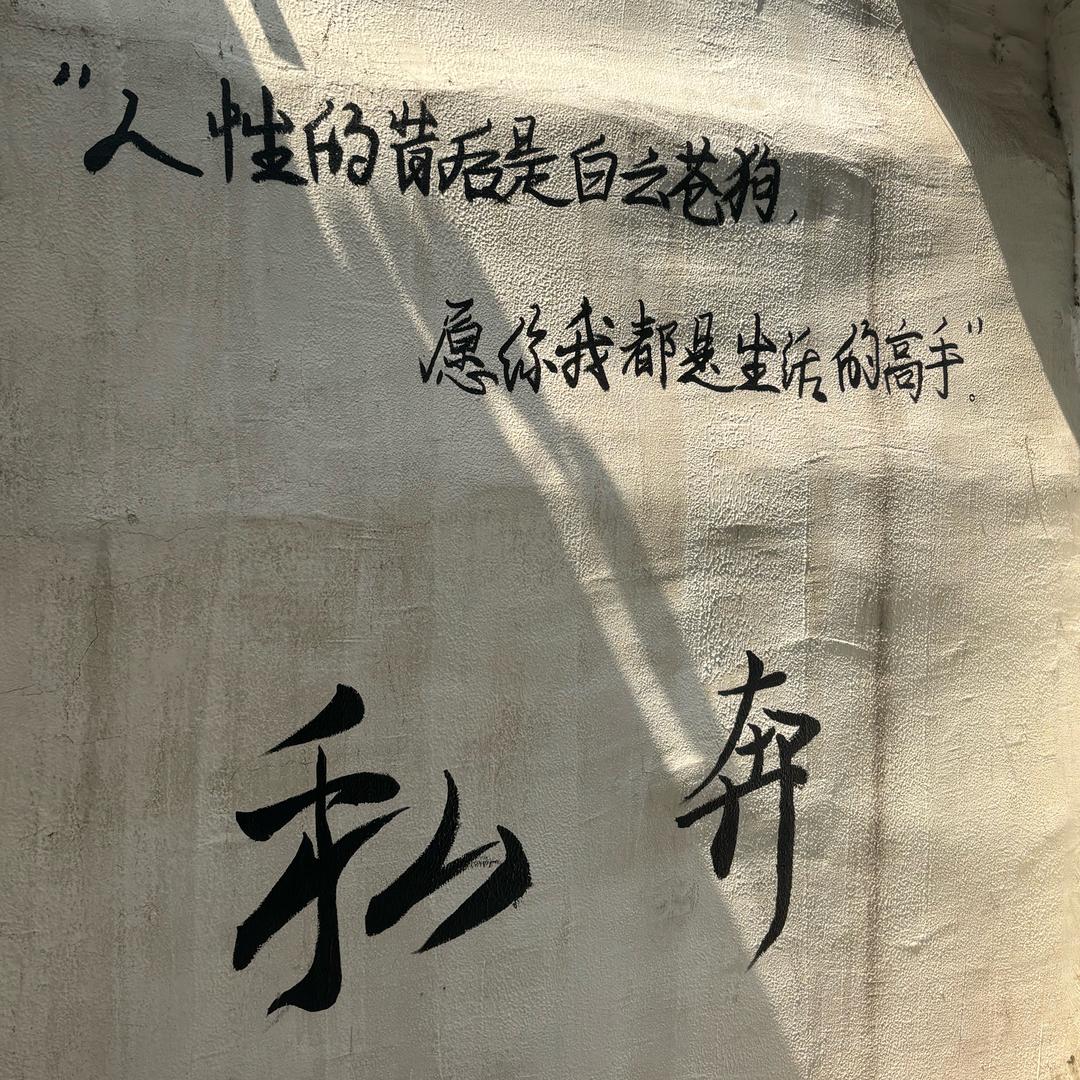 “人性的背后是白云苍狗,
愿你我都是生活的高手”。
私奔